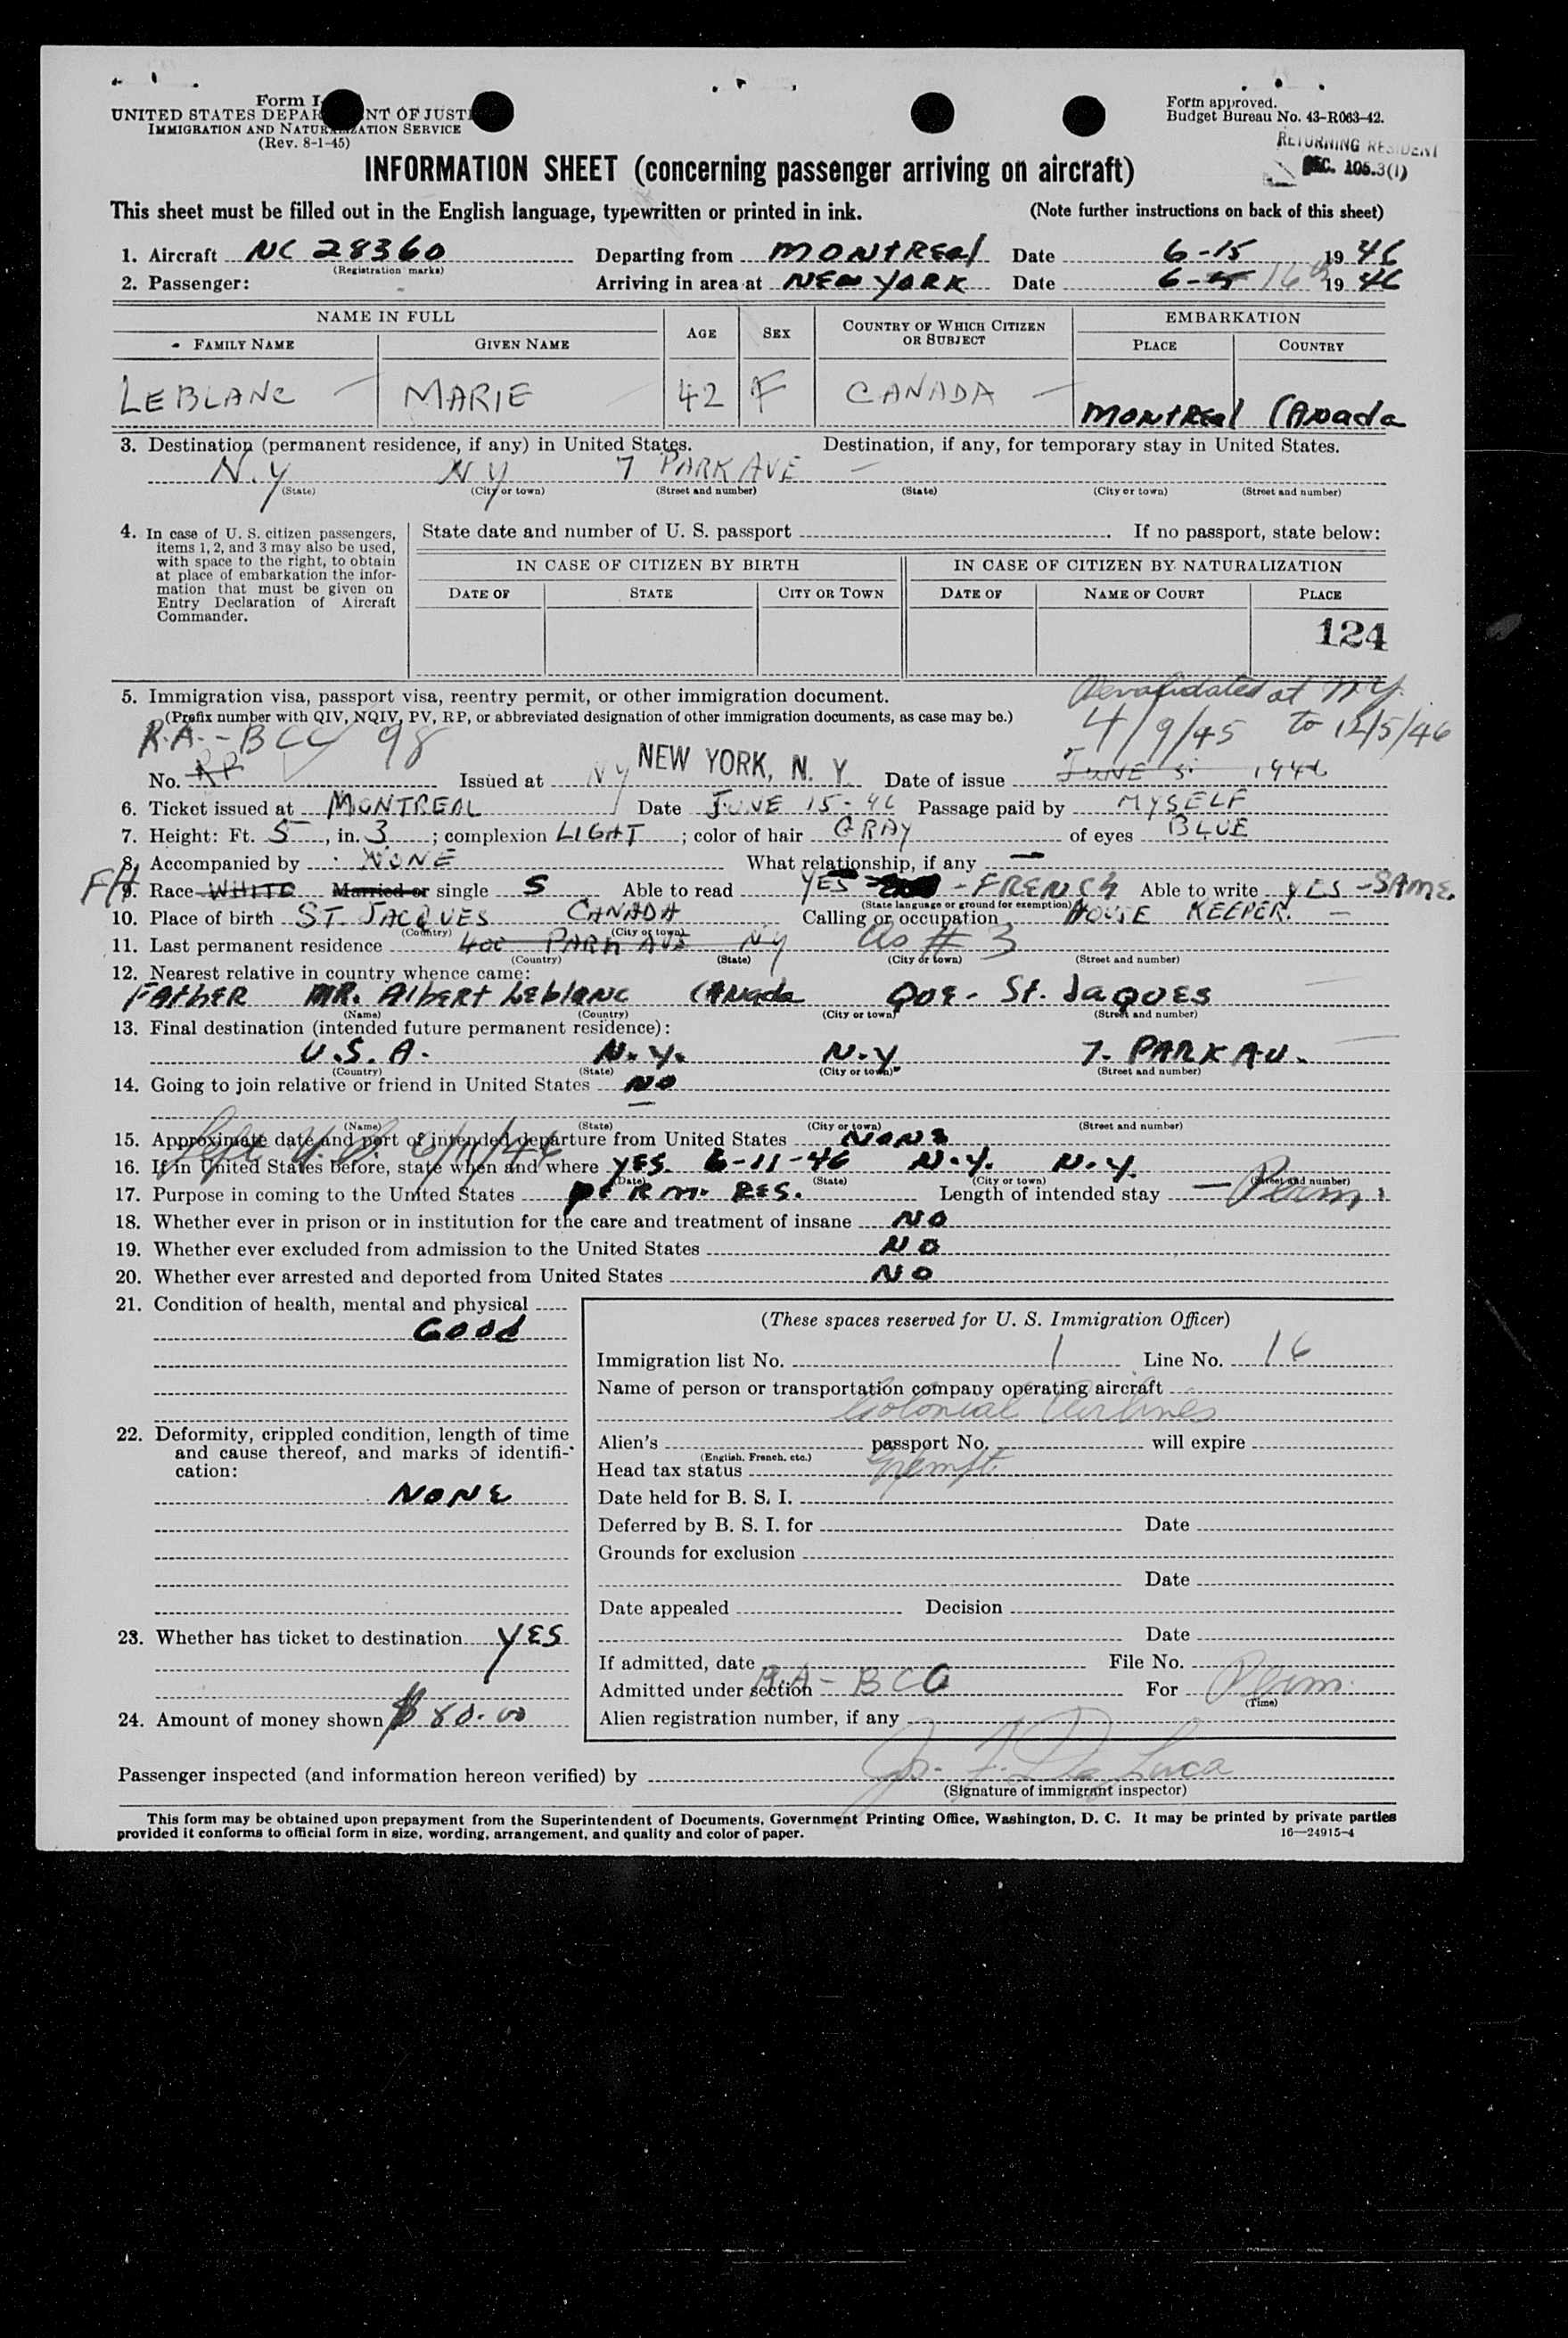 Form I-
Form approved.
UNITED STATES DEPAR NT OF JUSTI
Budget Bureau No. 43-R063-42.
IMMIGRATION AND NATURALIZATION SERVICE
(Rev. 8-1-45)
RETURNING RESIDENT
SEC. 105.3(1)
INFORMATION SHEET (concerning passenger arriving on aircraft)
This sheet must be filled out in the English language, typewritten or printed in ink. (Note further instructions on back of this sheet)
1. Aircraft NC 28360 Departing from MONTREAL Date 6-15 1946
(Registration marks)
2. Passenger: Arriving in area at NEW YORK Date 6- 16th 1946
NAME IN FULL AGE SEX COUNTRY OF WHICH CITIZEN OR SUBJECT EMBARKATION
FAMILY NAME GIVEN NAME PLACE COUNTRY
LEBLANC MARIE 42 F CANADA MONTREAL CANADA
3. Destination (permanent residence, if any) in United States. Destination, if any, for temporary stay in United States.
N.Y N Y 7 PARK AVE —
(State) (City or town) (Street and number) (State) (City or town) (Street and number)
4. In case of U. S. citizen passengers, items 1, 2, and 3 may also be used, with space to the right, to obtain at place of embarkation the information that must be given on Entry Declaration of Aircraft Commander.
State date and number of U. S. passport . If no passport, state below:
IN CASE OF CITIZEN BY BIRTH IN CASE OF CITIZEN BY NATURALIZATION
DATE OF STATE CITY OR TOWN DATE OF NAME OF COURT PLACE
124
5. Immigration visa, passport visa, reentry permit, or other immigration document. Revalidated at N.Y.
(Prefix number with QIV, NQIV, PV, RP, or abbreviated designation of other immigration documents, as case may be.)
R.A.-BCC 98 4/9/45 to 12/5/46
No. RP Issued at NY NEW YORK, N. Y. Date of issue JUNE 1946
6. Ticket issued at MONTREAL Date JUNE 15-46 Passage paid by MYSELF
7. Height: Ft. 5, in. 3; complexion LIGHT; color of hair GRAY of eyes BLUE
8. Accompanied by NONE What relationship, if any —
FH 9. Race WHITE Married or single S Able to read YES - FRENCH Able to write YES -SAME.
(State language or ground for exemption)
10. Place of birth ST. JACQUES CANADA Calling or occupation HOUSE KEEPER. —
(Country) (City or town)
11. Last permanent residence 400 PARK AVE NY As # 3
(Country) (State) (City or town) (Street and number)
12. Nearest relative in country whence came:
FATHER MR. Albert Leblanc CANada QUE- St. JaQUES
(Name) (Country) (City or town) (Street and number)
13. Final destination (intended future permanent residence):
U.S.A. N.Y. N.Y 7. PARK AU.
(Country) (State) (City or town) (Street and number)
14. Going to join relative or friend in United States NO
(Name) (State) (City or town) (Street and number)
Left U.S. 6/11/46
15. Approximate date and port of intended departure from United States NONE
16. If in United States before, state when and where YES. 6-11-46 N.Y. N.Y.
(Date) (State) (City or town) (Street and number)
17. Purpose in coming to the United States PERM. RES. Length of intended stay — Perm.
18. Whether ever in prison or in institution for the care and treatment of insane NO
19. Whether ever excluded from admission to the United States NO
20. Whether ever arrested and deported from United States NO
21. Condition of health, mental and physical
GOOd
22. Deformity, crippled condition, length of time and cause thereof, and marks of identification:
NONE
23. Whether has ticket to destination YES
24. Amount of money shown $ 80.00
(These spaces reserved for U. S. Immigration Officer)
Immigration list No. 1 Line No. 16
Name of person or transportation company operating aircraft
Colonial Airlines
Alien's passport No. will expire
(English, French, etc.)
Head tax status Exempt
Date held for B. S. I.
Deferred by B. S. I. for Date
Grounds for exclusion
Date
Date appealed Decision
Date
If admitted, date File No.
Admitted under section R.A-BCC For Perm.
(Time)
Alien registration number, if any
Passenger inspected (and information hereon verified) by Jos. F. De Luca
(Signature of immigrant inspector)
This form may be obtained upon prepayment from the Superintendent of Documents, Government Printing Office, Washington, D. C. It may be printed by private parties
provided it conforms to official form in size, wording, arrangement, and quality and color of paper. 16—24915-4